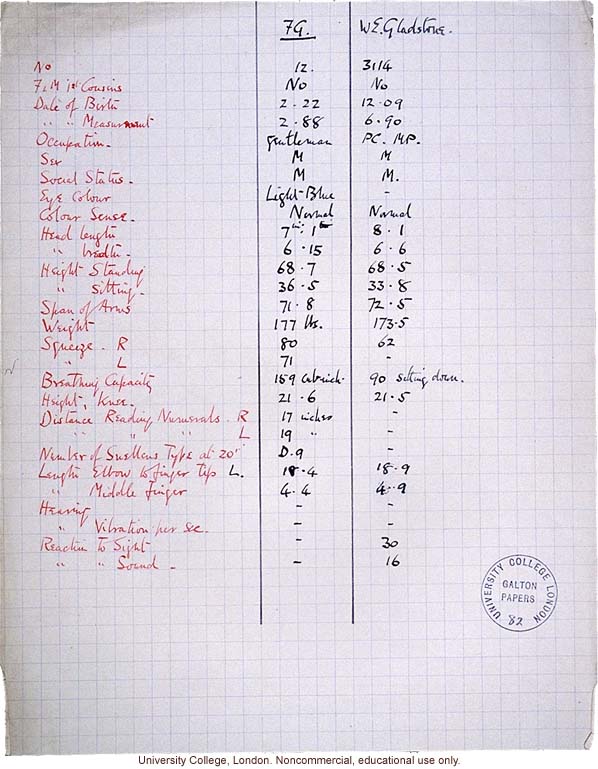 FG. W.E. Gladstone.
No 12. 3114
F & M 1st Cousins No No
Date of Birth 2.22 12.09
" " Measurement 2.88 6.90
Occupation. gentleman PC. MP.
Sex M M
Social Status. M M.
Eye Colour Light-Blue -
Colour Sense. Normal Normal
Head length 7 8.1
" bredth. 6.15 6.6
Height Standing 68.7 68.5
" Sitting. 36.5 33.8
Span of Arms 71.8 72.5
Weight 177 lbs. 173.5
Squeeze. R 80 62
" L 71 -
Breathing Capacity 159 cub inch. 90 sitting down.
Height, Knee. 21.6 21.5
Distance Reading Numerals. R 17 inches -
" " " L 19 " -
Number of Snellens Type at 20' D.9 -
Length Elbow to finger tip L. 18.4 18.9
" Middle finger 4.4 4.9
Hearing - -
" Vibration per sec. - -
Reaction to Sight - 30
" " Sound - - 16
UNIVERSITY COLLEGE LONDON
GALTON
PAPERS
82
University College, London. Noncommercial, educational use only.